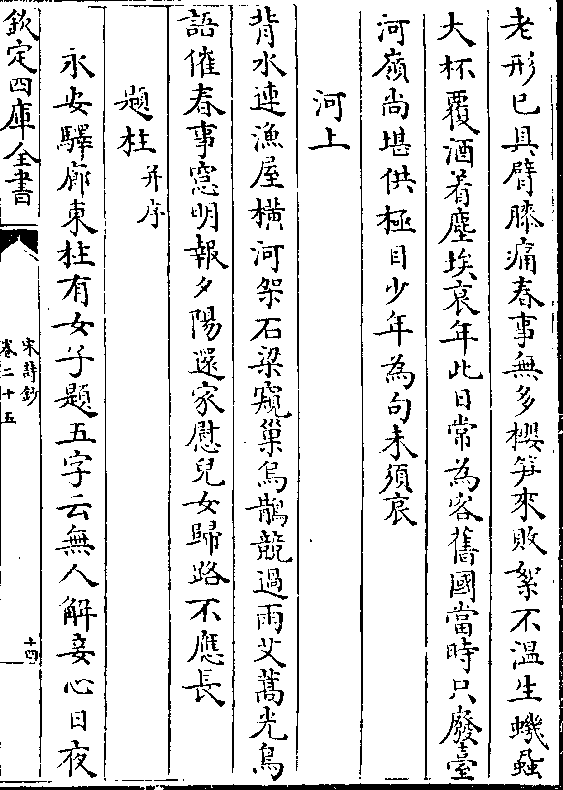 老形已具臂膝痛春事無多櫻笋來敗絮不溫生蟣蝨
大杯覆酒着塵埃衰年此日常為客舊國當時只廢臺
河嶺尚堪供極目少年為句未須哀
河上
背水連漁屋橫河架石梁窺巢烏鵲競過雨艾蒿光鳥
語催春事窓明報夕陽還家慰兒女歸路不應長
題柱并序
永安驛廊東柱有女子題五字云無人解妾心日夜
欽定四庫全書
宋詩鈔
卷二十五
十四